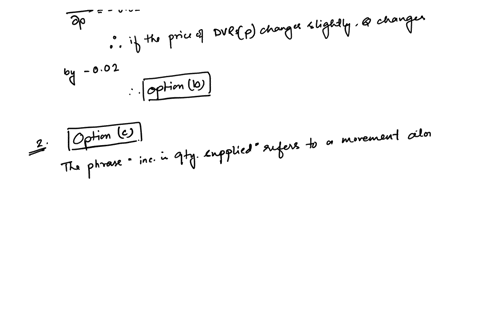 ∂p
∴ if the price of DVRs(p) changes slightly. Q changes
by -0.02
∴ option (b)
2. Option (c)
The phrase "inc. in qty. supplied" refers to a movement